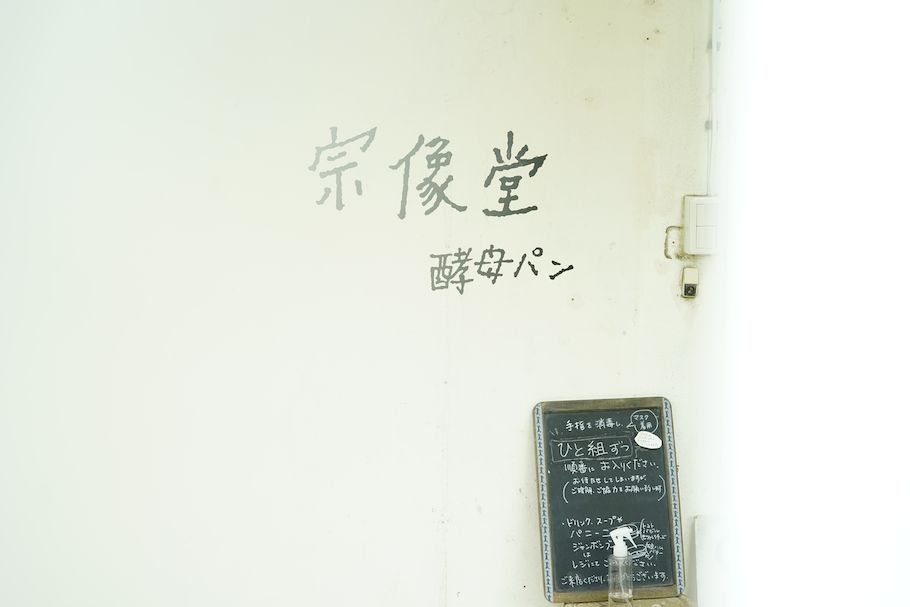 宗像堂
酵母パン
手指を消毒し、
マスク
着用
ひと組ずつ
順番に お入りください。
お待たせしてしまいますが、
ご理解、ご協力をお願い致します
・ドリンク、スープや
パニーニ
ジャンボン
は
レジにて ください。
ご来店くださり、 ございます。